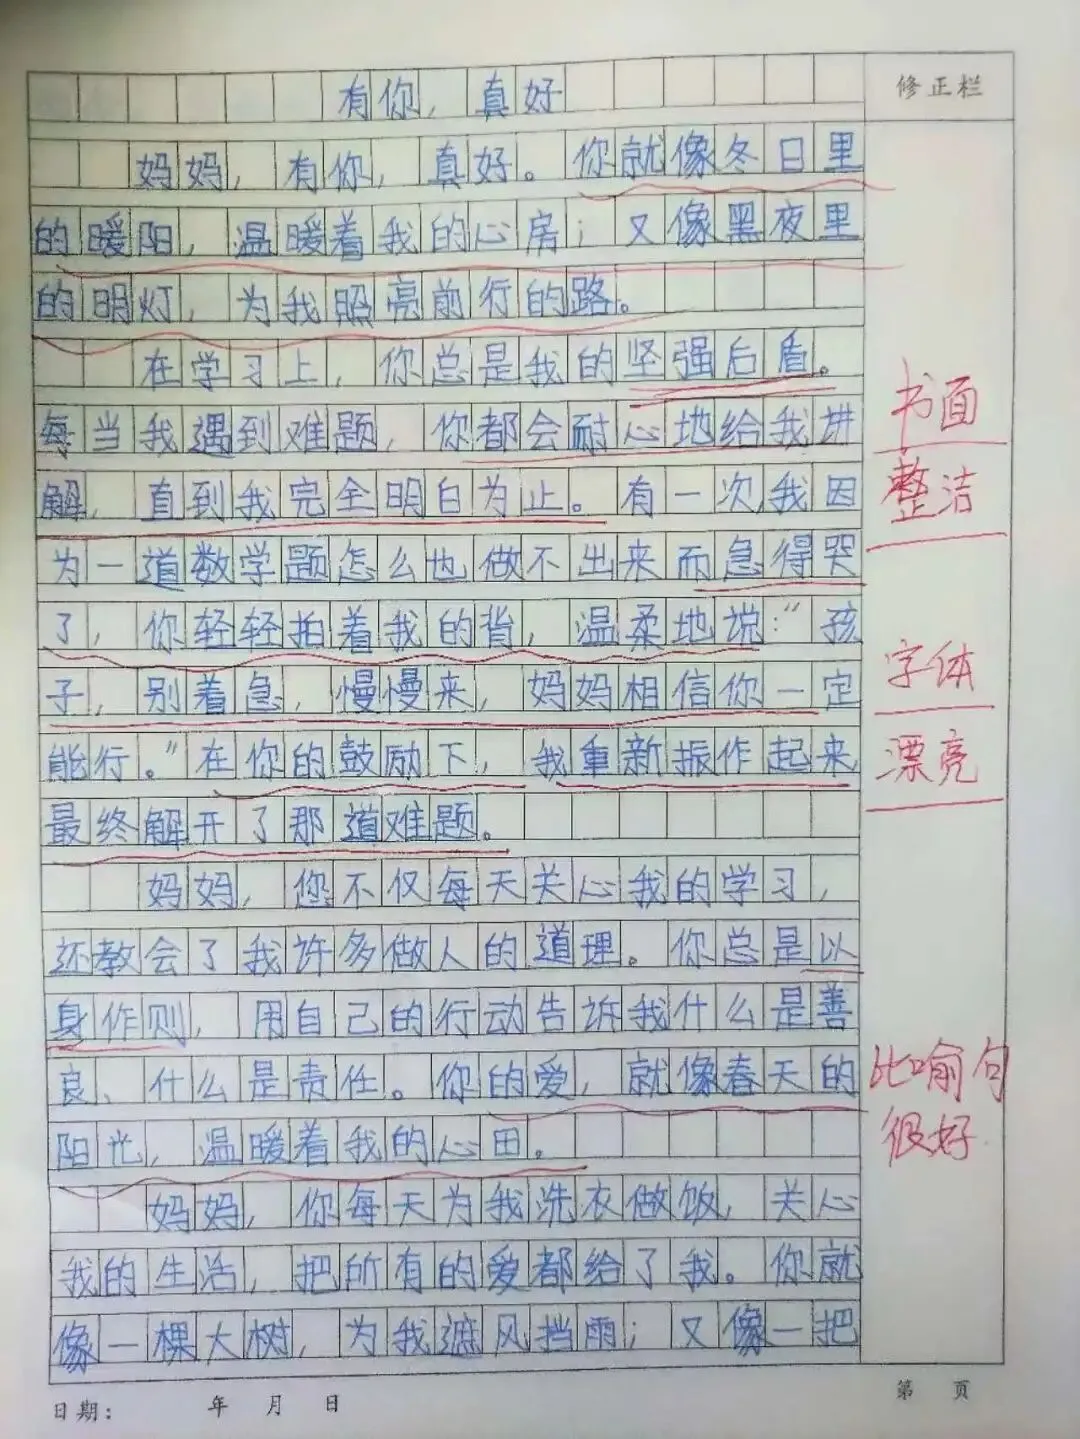 修正栏
有你，真好
妈妈，有你，真好。你就像冬日里
的暖阳，温暖着我的心房；又像黑夜里
的明灯，为我照亮前行的路。
在学习上，你总是我的坚强后盾。
每当我遇到难题，你都会耐心地给我讲
解，直到我完全明白为止。有一次，我因
为一道数学题怎么也做不出来而急得哭
了，你轻轻拍着我的背，温柔地说：“孩
子，别着急，慢慢来，妈妈相信你一定
能行。”在你的鼓励下，我重新振作起来
最终解开了那道难题。
妈妈，您不仅每天关心我的学习，
还教会了我许多做人的道理。你总是以
身作则，用自己的行动告诉我什么是善
良、什么是责任。你的爱，就像春天的
阳光，温暖着我的心田。
妈妈，你每天为我洗衣做饭，关心
我的生活，把所有的爱都给了我。你就
像一棵大树，为我遮风挡雨；又像一把
书面
整洁
字体
漂亮
比喻句
很好
日期： 年 月 日
第 页